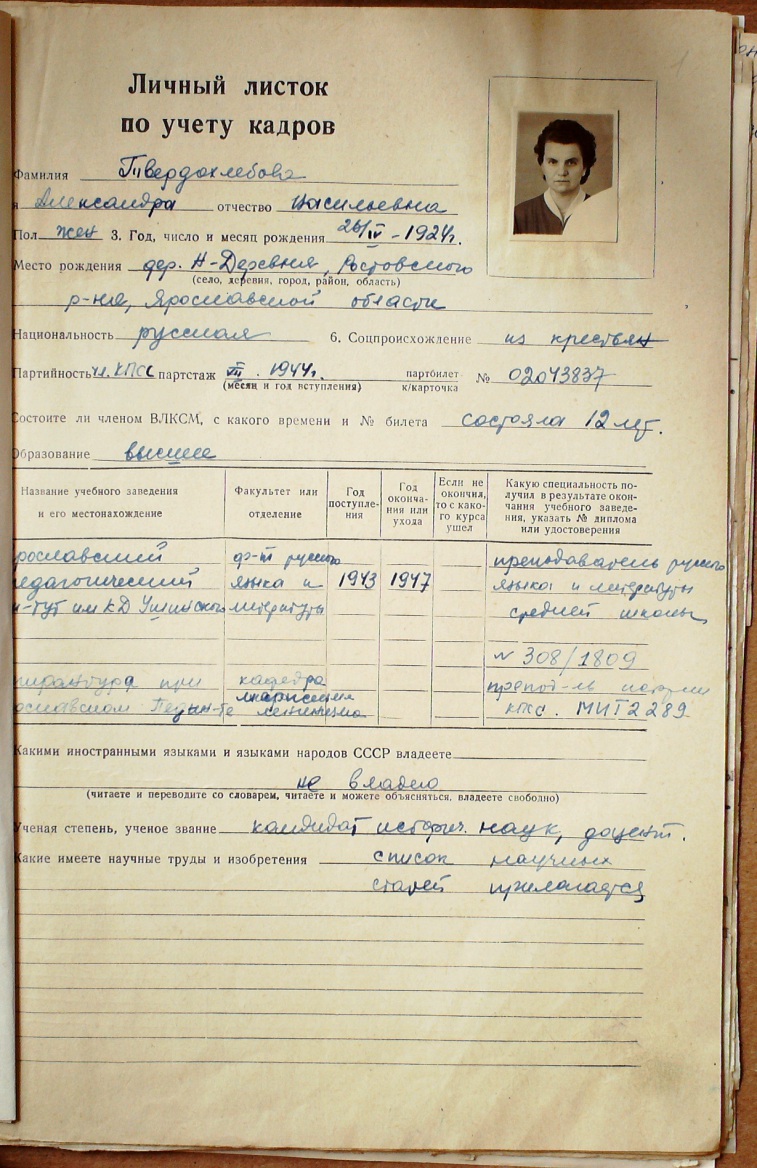 1
Личный листок
по учету кадров
Фамилия Твердохлебова
я Александра отчество Васильевна
Пол жен 3. Год, число и месяц рождения 26/IV - 1924г.
Место рождения дер. Н-Деревня, Ростовского
(село, деревня, город, район, область)
р-на, Ярославской области
Национальность русская 6. Соцпроисхождение из крестьян
Партийность чл. КПСС партстаж VII. 1944г. партбилет к/карточка № 02043837
(месяц и год вступления)
Состоите ли членом ВЛКСМ, с какого времени и № билета состояла 12 лет.
Образование высшее
Название учебного заведения и его местонахождение
Факультет или отделение
Год поступле-
ния
Год
оконча-
ния или
ухода
Если не
окончил,
то с како-
го курса
ушел
Какую специальность по-
лучил в результате окон-
чания учебного заведе-
ния, указать № диплома
или удостоверения
рославский ф-т русского преподаватель русского
едагогический языка и 1943 1947 языка и литературы
н-тут им КД Ушинского литературы средней школы
№ 308/1809
пирантура при кафедра препод-ль истории
марксизма
ославском Педин-те ленинизма КПСС. МИТ2289
Какими иностранными языками и языками народов СССР владеете
не владею
(читаете и переводите со словарем, читаете и можете объясняться, владеете свободно)
Ученая степень, ученое звание кандидат историч. наук, доцент.
Какие имеете научные труды и изобретения список научных
статей прилагается